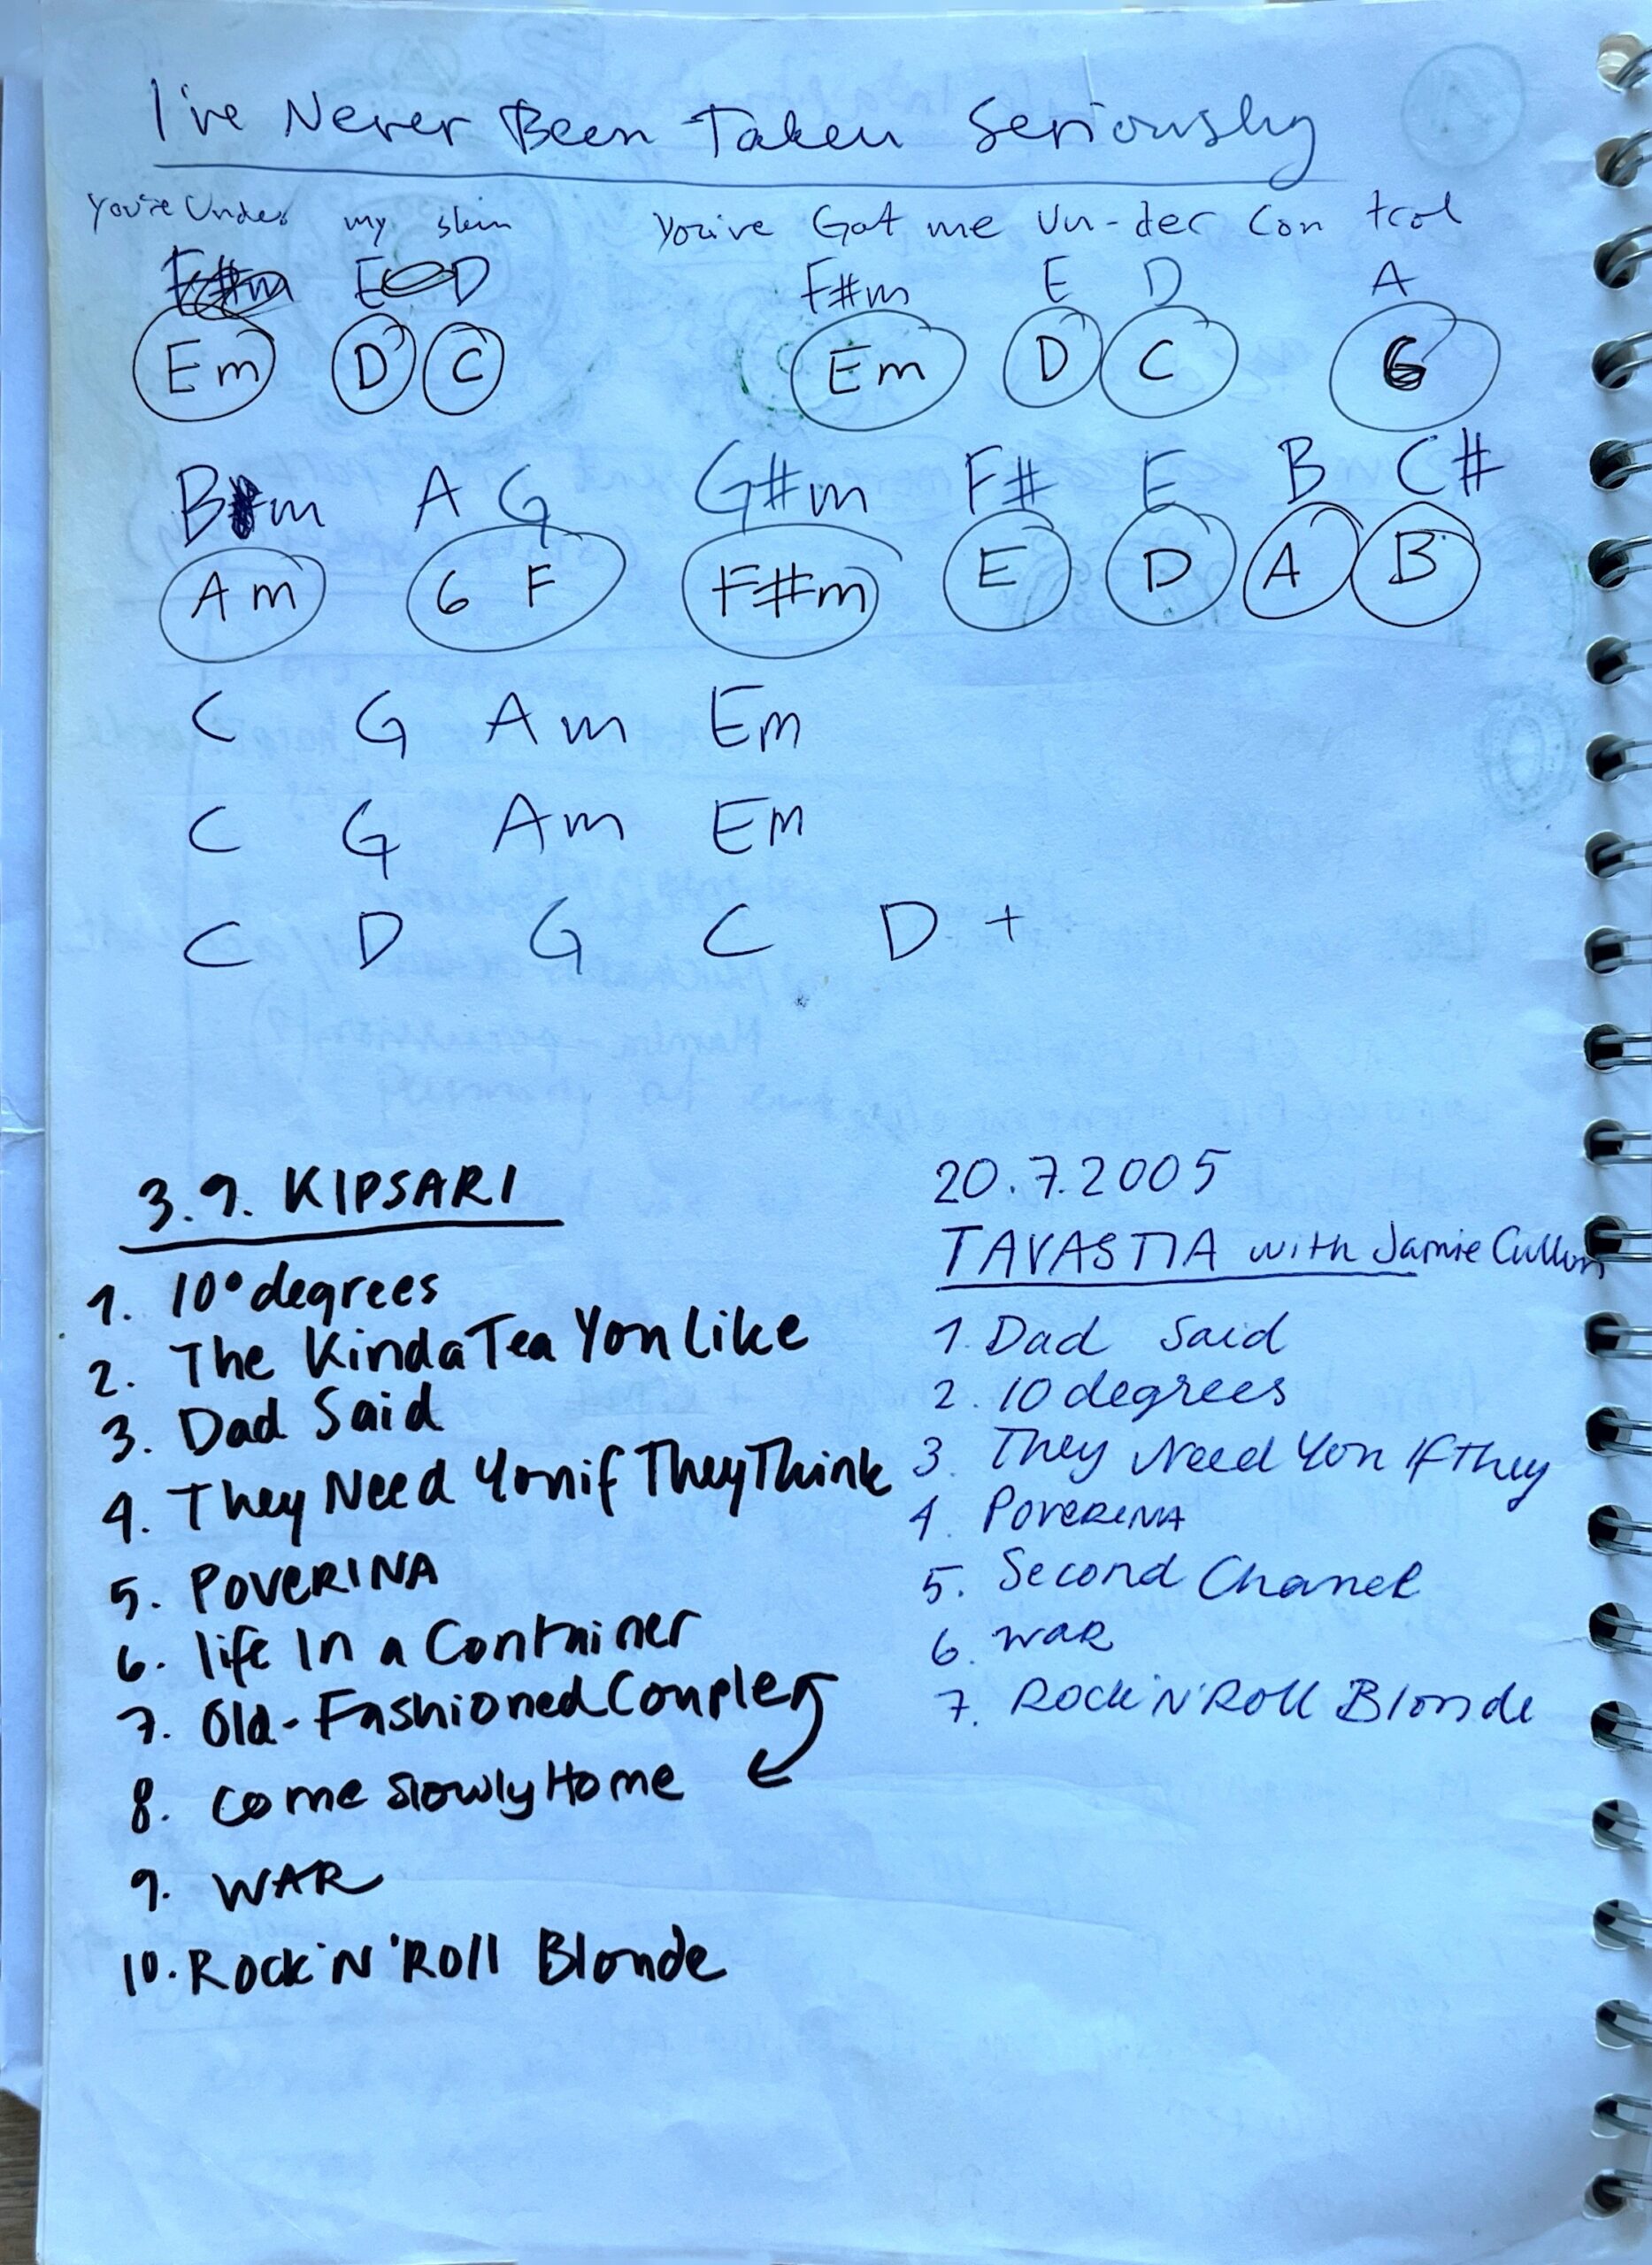 I've Never Been Taken Seriously
You're Under my skin You've Got me Un-der Con trol
F#m E D F#m E D A
Em D C Em D C G
Bm A G G#m F# E B C#
Am G F F#m E D A B
C G Am Em
C G Am Em
C D G C D +
3.9. KIPSARI
1. 10° degrees
2. The Kinda Tea You Like
3. Dad Said
4. They Need You if They Think
5. POVERINA
6. life In a Container
7. Old-Fashioned Couple
8. Come Slowly Home
9. WAR
10. Rock'N'Roll Blonde
20.7.2005
TAVASTIA with Jamie Cullum
1. Dad Said
2. 10 degrees
3. They Need You If They
4. POVERINA
5. Second Chanel
6. WAR
7. Rock'N'Roll Blonde